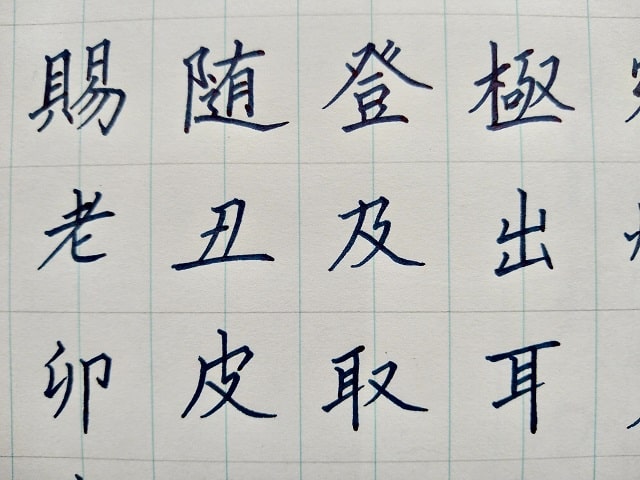 賜随登極
老丑及出
卯皮取耳